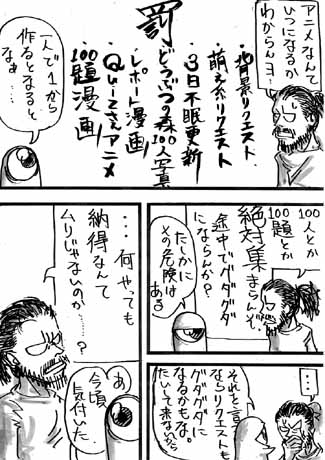 アニメなんて
いつになるか
わからんヨ…
罰
・背景リクエスト
・萌え系リクエスト
・3日不眠更新
・どうぶつの森100人写真
・レポート漫画
・Qぃーさんアニメ
・100題漫画
一人で1から
作るとなると
なぁ……
100人とか
100題とか
絶対集
まらんぞ。
途中でグダグダ
にならんか?
たしかに
その危険は
ある
…
それと言う
ならリクエストも
グダグダに
なるかもな。
たいして来ないから
…何やっても
納得なんて
ムリじゃないのか……?
あ
今頃
気付いた